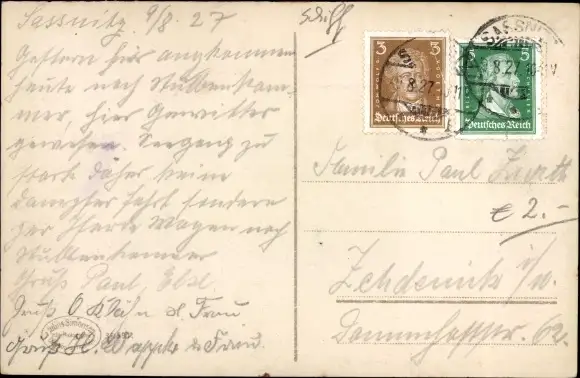 Sassnitz 9/8. 27
Gestern hier angekommen
heute nach Stubbenkam-
mer, hier Gewitter
gewesen. Seegang zu
stark daher keine
Dampfer fahrt sondern
per Wagen nach
Stubbenkammer
Gruß Paul,
Gruß O Kühn u Frau
Gruß H. u Frau.
Schiff
3 3
Deutsches Reich
5 5
Deutsches Reich
SASSNITZ
8.27
Familie Paul
€ 2.-
Zehdenick
Dammhaststr. 62.